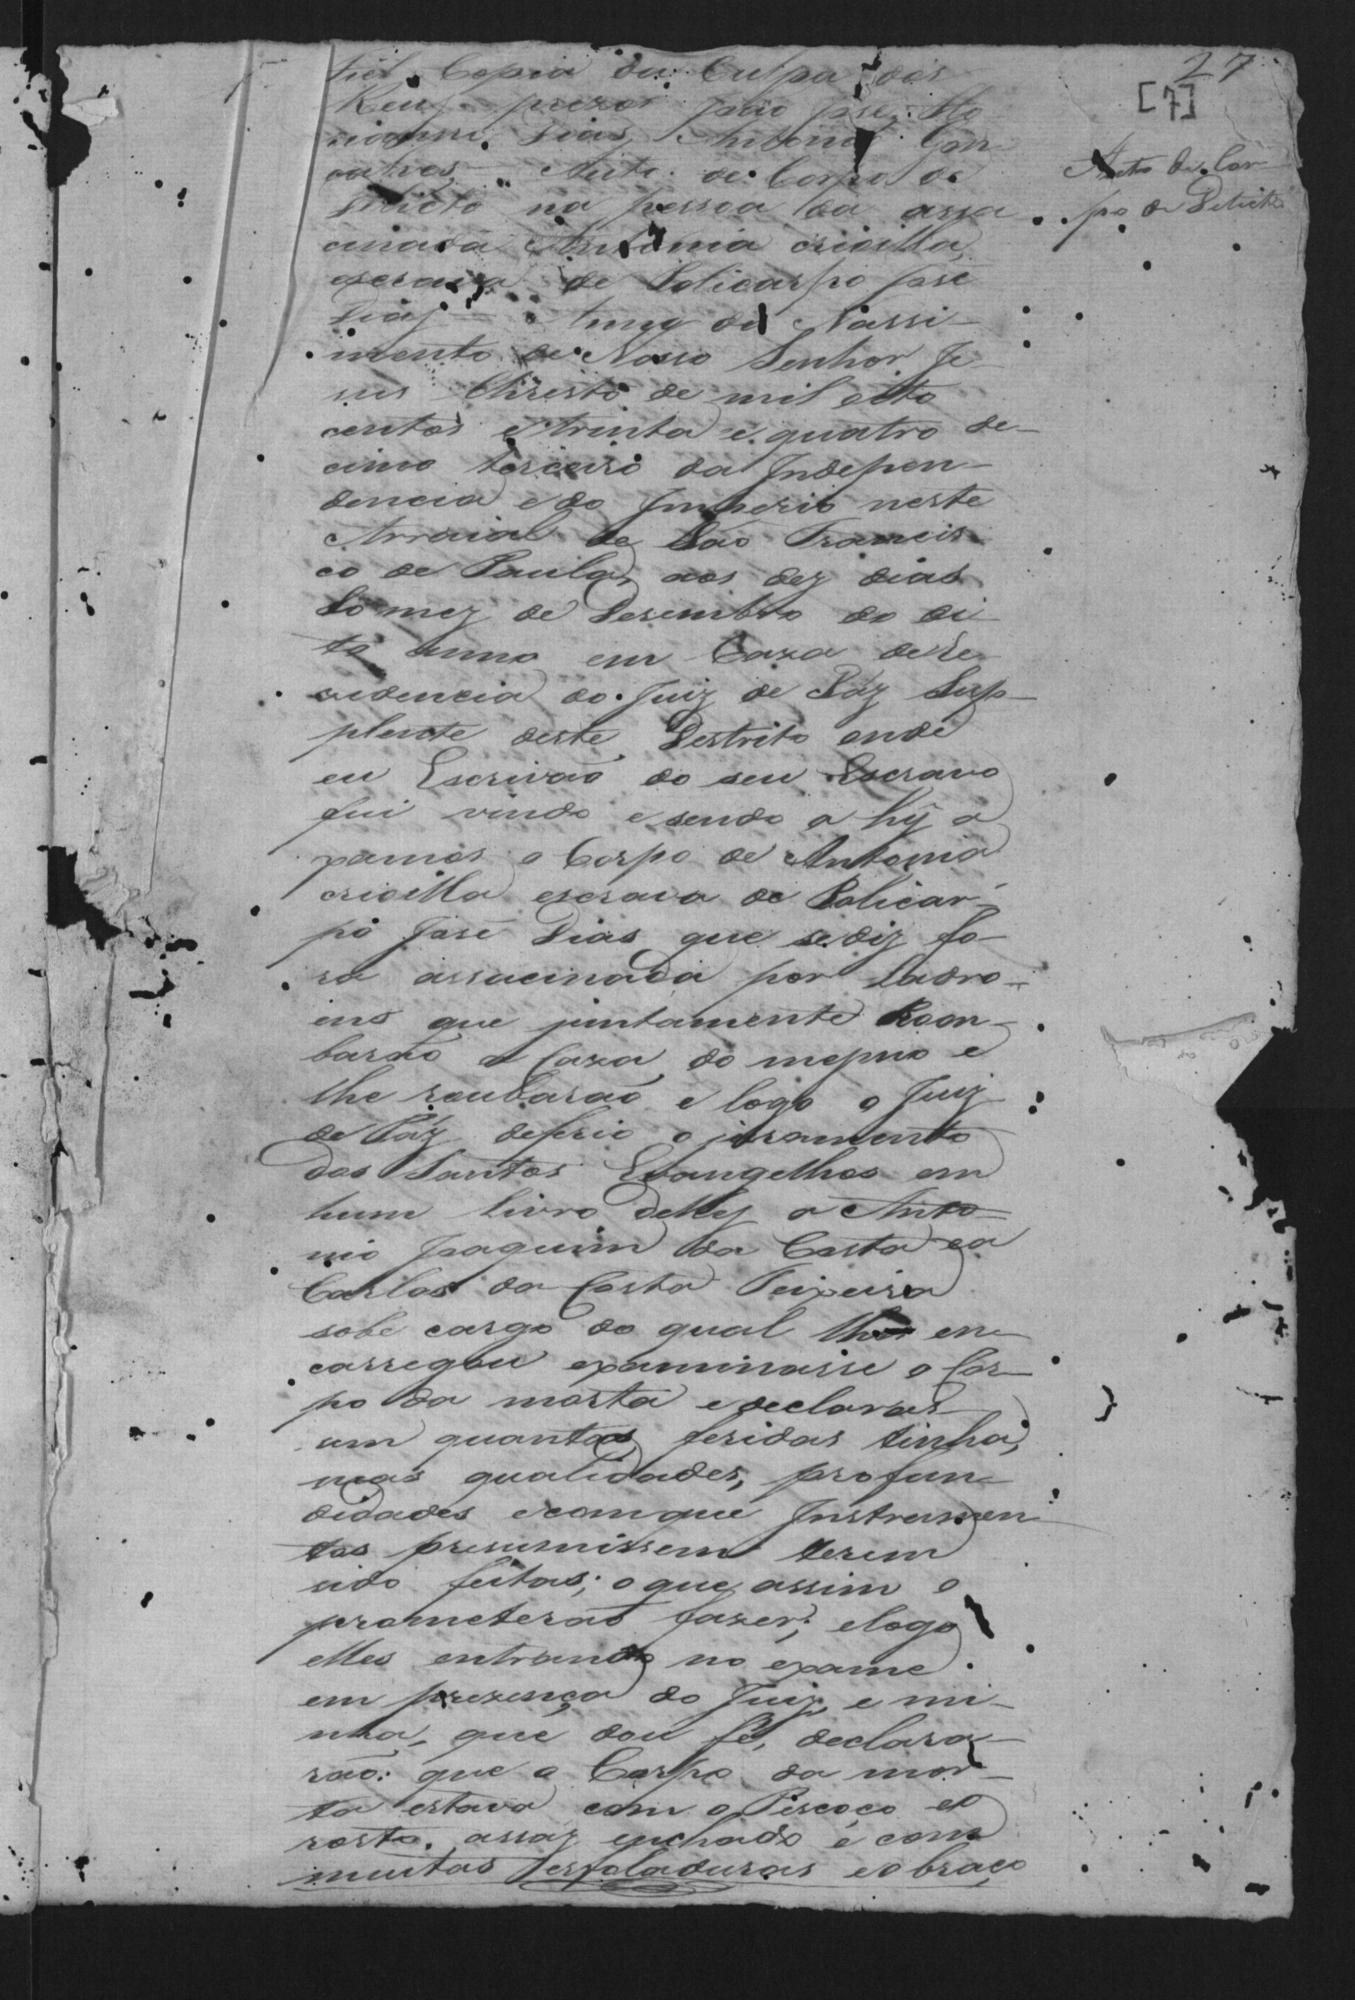 27
[7]
Auto de Cor-
po de Delicto
Fiel Copia da Culpa dos
Reus prezos João José,
Dias, Antonio
outros. Auto de Corpo de
Delicto na pessoa da assa
cinada Antonia crioilla
escrava de Policarpo José
Dias Anno do Nassi-
mento de Nosso Senhor Je
sus Christo de mil oito
centos e trinta e quatro de-
cimo terceiro da Indepen-
dencia e do Imperio neste
Arraial de São Francis
co de Paula, aos dez dias
do mez de Desembro do di
to anno em Caza de Re
zidencia do Juiz de Páz Sup-
plente deste Destrito onde
eu Escrivão do seu Escravo
fui vindo e sendo a hÿ a
xamos o Corpo de Antonia
crioilla escrava de Policar-
po José Dias que se diz fo-
ra assacinada por Ladro-
ens que juntamente Room-
barão a Caza do mesmo e
lhe roubarão e logo o Juiz
de Páz deferio o juramento
dos Santos Evangelhos em
hum livro delles a Anto-
nio Joaquim da Costa ea
Carlos da Costa Teixeira
sobe cargo do qual lhes en-
carregou examinasse o Cor-
po da morta e declaras-
sem quantas feridas tinha,
suas qualidades, profun-
didades e com que Instrumen
tos presumissem terem
sido feitas; o que assim o
prometerão fazer; e logo
elles entrando no exame
em prezença do Juiz, e mi-
nha, que dou fé, declara-
rão: que o Corpo da mor-
ta estava com o Piscoço eo
rosto assaz enchado e com
muitas esfoladuras eo braço